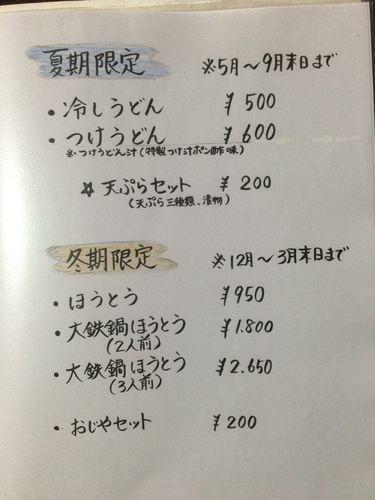 夏期限定 ※5月〜9月末日まで
・冷しうどん ¥500
・つけうどん ¥600
※つけうどん汁(特製つけ汁ポン酢味)
☆天ぷらセット ¥200
(天ぷら三種類、漬物)
冬期限定 ※12月〜3月末日まで
・ほうとう ¥950
・大鉄鍋ほうとう ¥1.800
(2人前)
・大鉄鍋ほうとう ¥2.650
(3人前)
・おじやセット ¥200